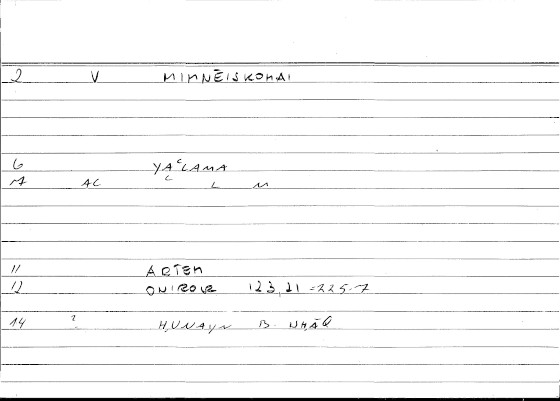 2 V MIMNĒISKOMAI
6 YAᶜLAMA
M AC C L M
11 ARTEM
12 ONIROKR 123,21 =225.7
14 ? HUNAYN B.